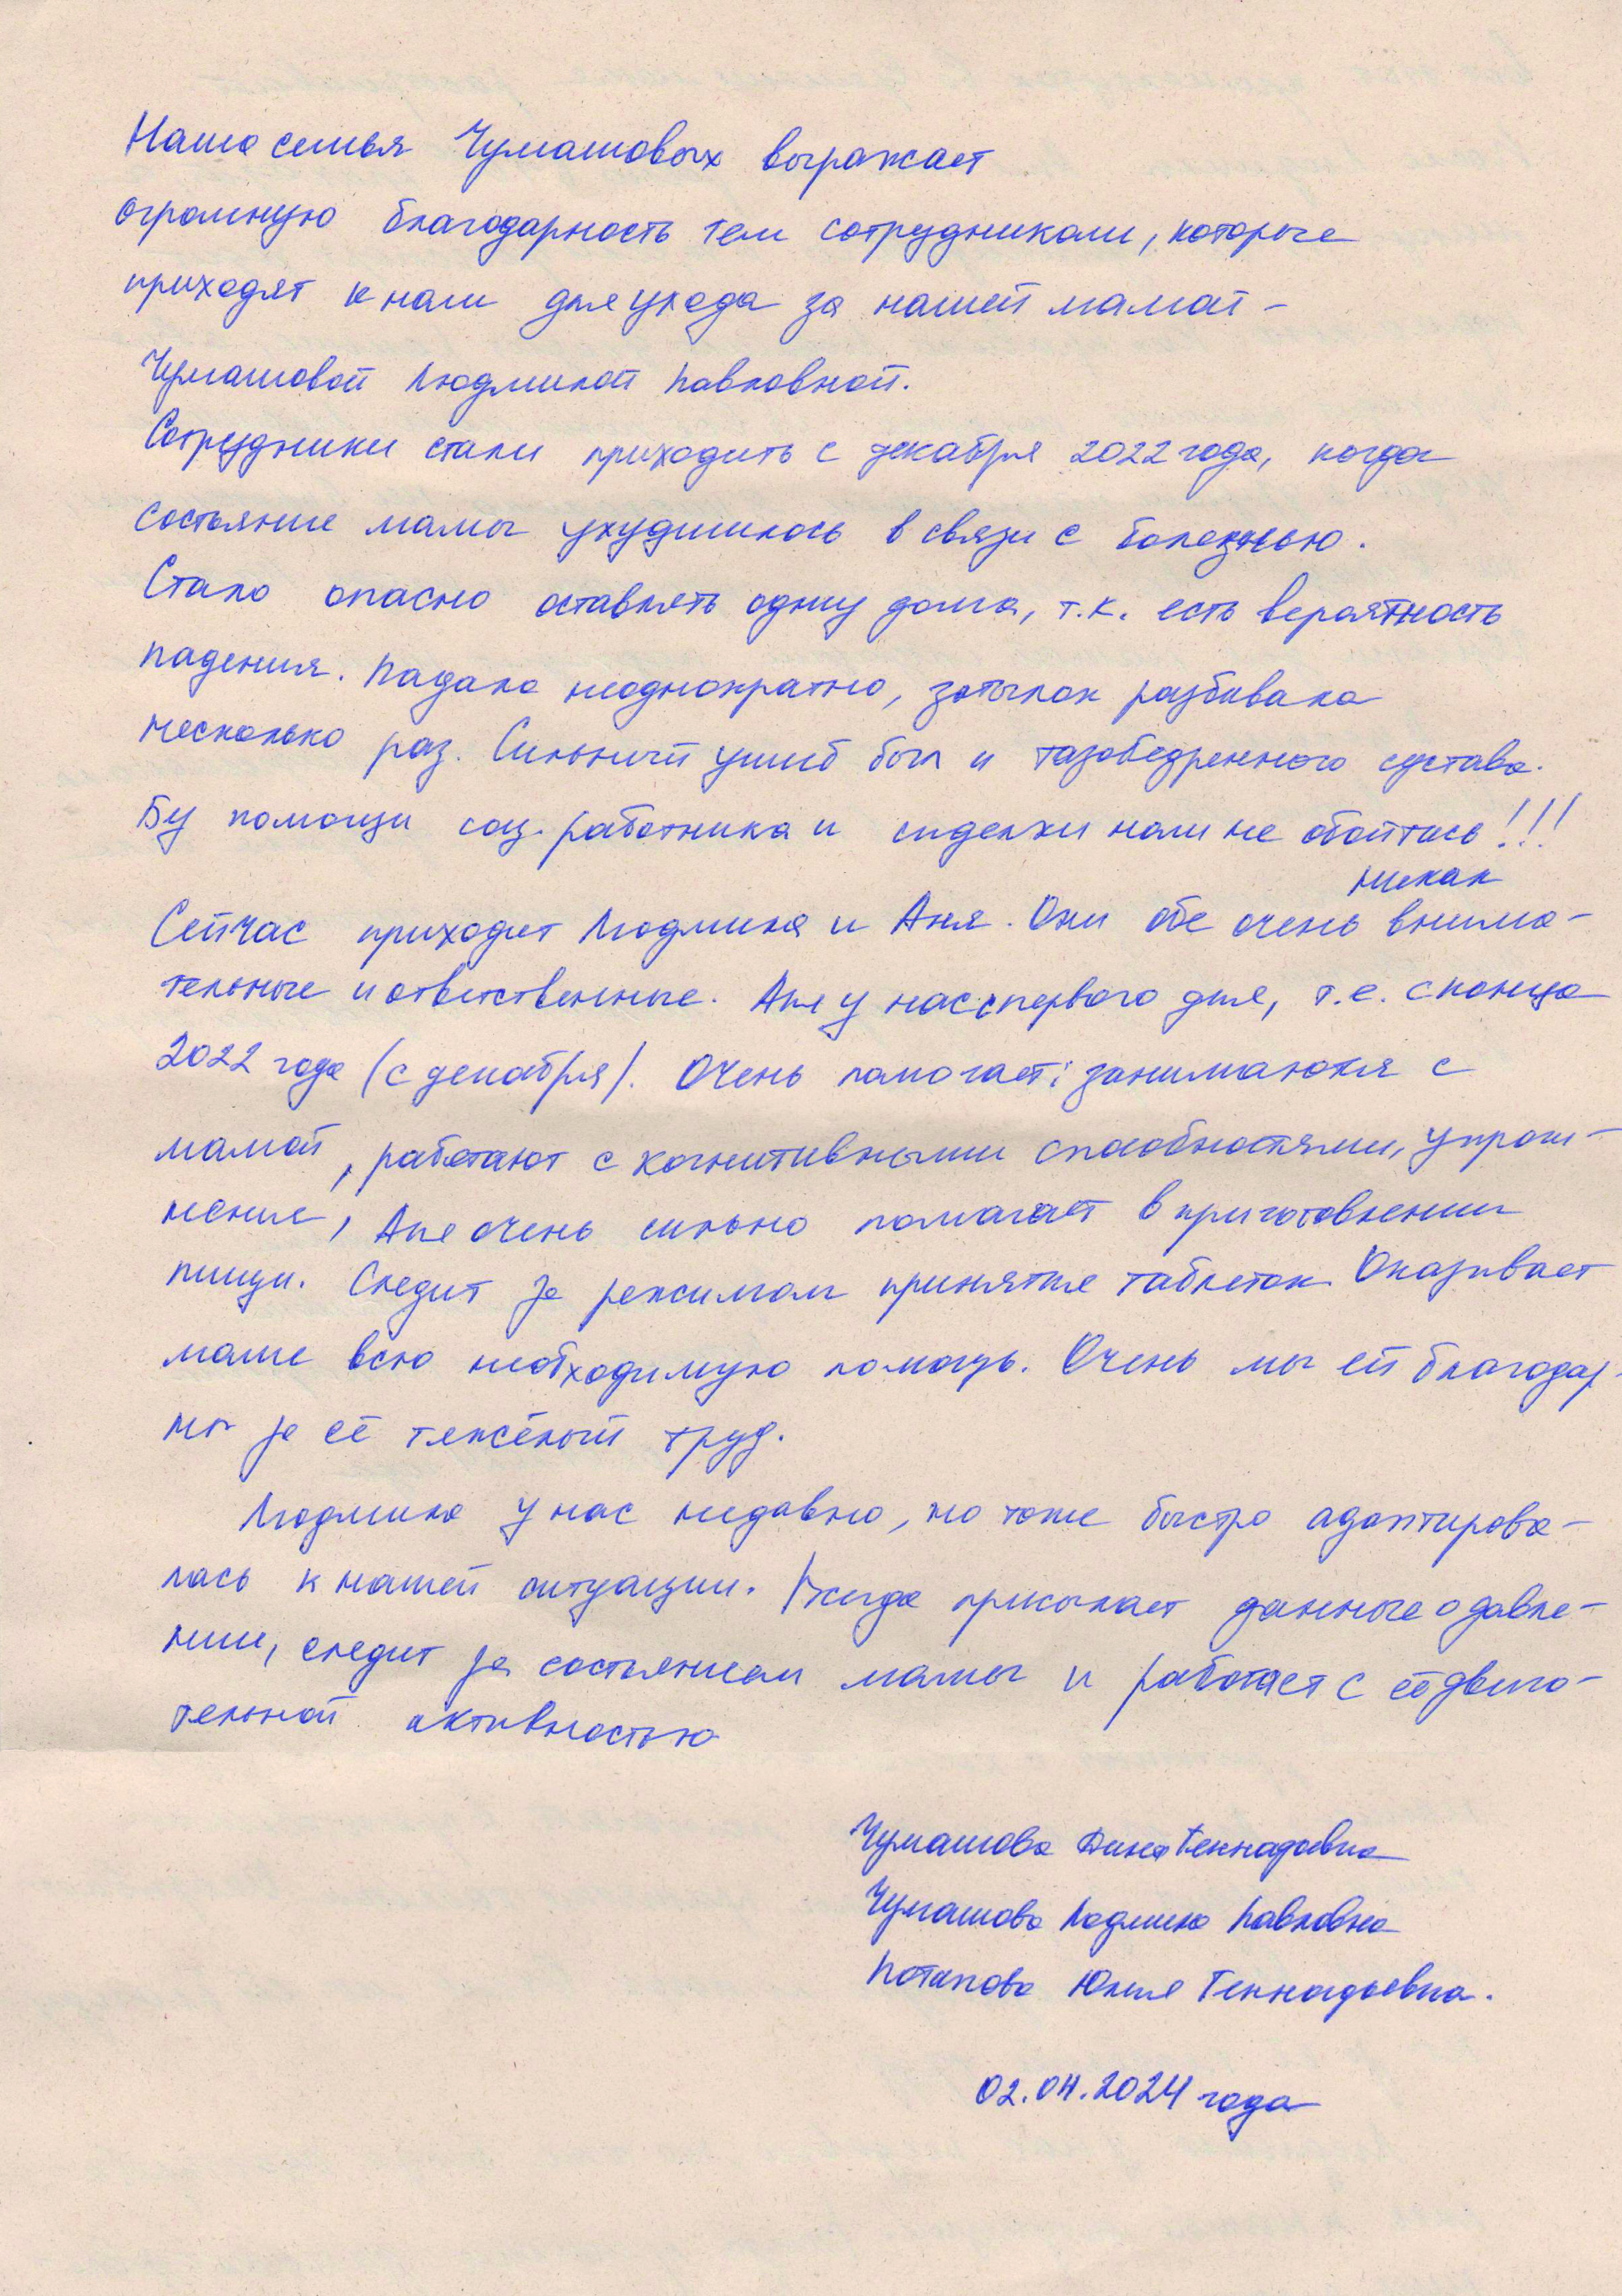 Наша семья Чумашовых выражает
огромную благодарность тем сотрудникам, которые
приходят к нам для ухода за нашей мамой -
Чумашовой Людмилой Павловной.
Сотрудники стали приходить с декабря 2022 года, когда
состояние мамы ухудшилось в связи с болезнью.
Стало опасно оставлять одну дома, т.к. есть вероятность
падения. Падала неоднократно, затылок разбивала
несколько раз. Сильный ушиб был и тазобедренного сустава.
Без помощи соц. работника и сиделки нам не обойтись!!!
никак
Сейчас приходит Людмила и Аня. Они обе очень внима-
тельные и ответственные. Аня у нас с первого дня, т.е. с конца
2022 года (с декабря). Очень помогает: занимаются с
мамой, работают с когнитивными способностями, упраж-
нение, Аня очень сильно помогает в приготовлении
пищи. Следит за режимом принятия таблеток. Оказывает
маме всю необходимую помощь. Очень мы ей благодар-
ны за её тяжёлый труд.
Людмила у нас недавно, но тоже быстро адаптирова-
лась к нашей ситуации. Всегда присылает данные о давле-
нии, следит за состоянием мамы и работает с её двига-
тельной активностью
Чумашова Дина Геннадьевна
Чумашова Людмила Павловна
Потапова Юлия Геннадьевна.
02.04.2024 года